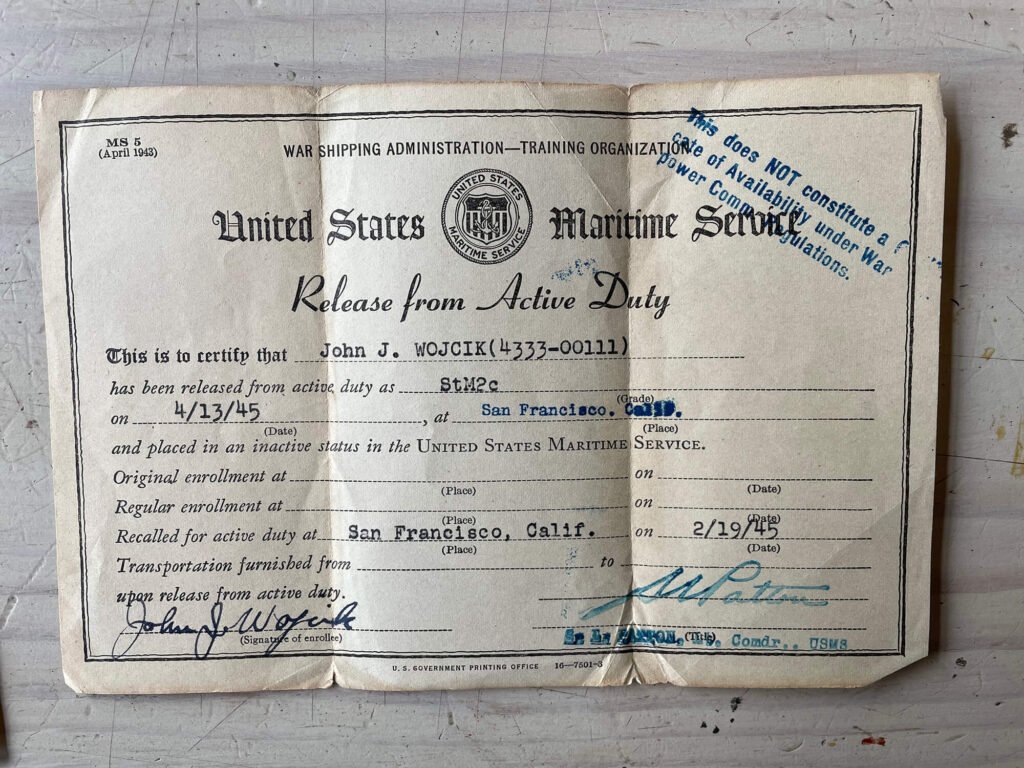 MS 5
(April 1943)
WAR SHIPPING ADMINISTRATION—TRAINING ORGANIZATION
This does NOT constitute a
cate of Availability under War
power Comm gulations.
United States Maritime Service
UNITED STATES
MARITIME SERVICE
Release from Active Duty
This is to certify that John J. WOJCIK(4333-00111)
has been released from active duty as StM2c
(Grade)
on 4/13/45, at San Francisco. Calif.
(Date) (Place)
and placed in an inactive status in the UNITED STATES MARITIME SERVICE.
Original enrollment at on
(Place) (Date)
Regular enrollment at on
(Place) (Date)
Recalled for active duty at San Francisco, Calif. on 2/19/45
(Place) (Date)
Transportation furnished from to
upon release from active duty.
John J. Wojcik Patton
(Signature of enrollee) (Title)
PATTON, Comdr., USMS
U. S. GOVERNMENT PRINTING OFFICE 16—7501-3